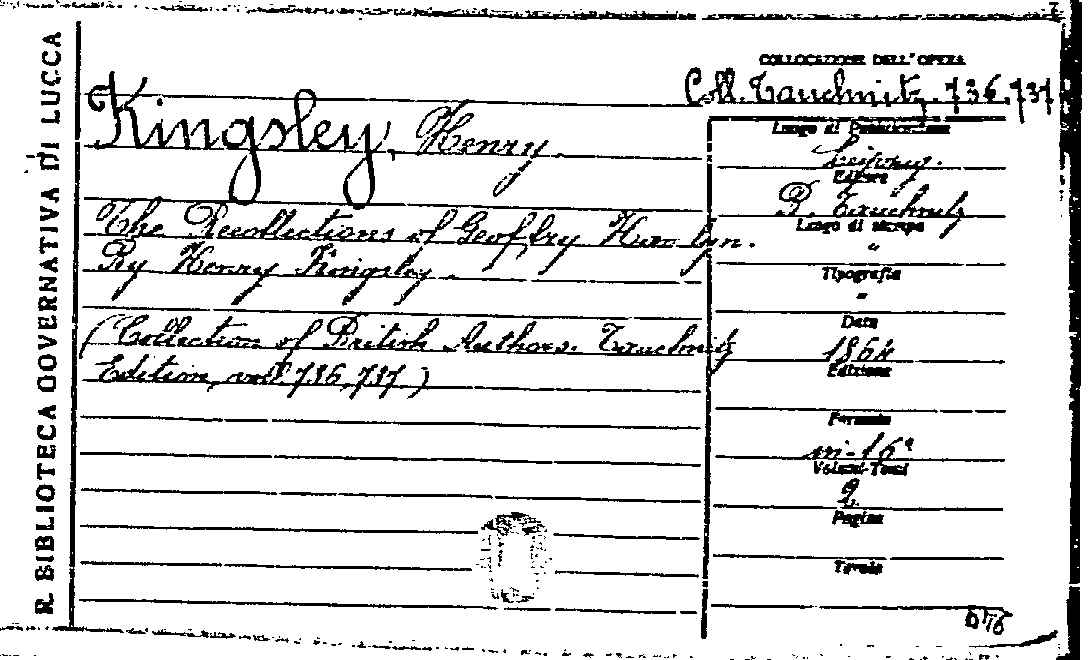 R. BIBLIOTECA GOVERNATIVA DI LUCCA
COLLOCAZIONE DELL'OPERA
Coll. Tauchnitz. 736.737
Kingsley, Henry.
The Recollections of Geoffry Hamlyn.
By Henry Kingsley.
(Collection of British Authors. Tauchnitz
Edition, voll. 736, 737)
Luogo di Pubblicazione
Leipzig.
Editore
B. Tauchnitz
Luogo di stampa
"
Tipografia
"
Data
1864
Edizione
Formato
in-16°
Volumi-Tomi
2
Pagine
Tavole